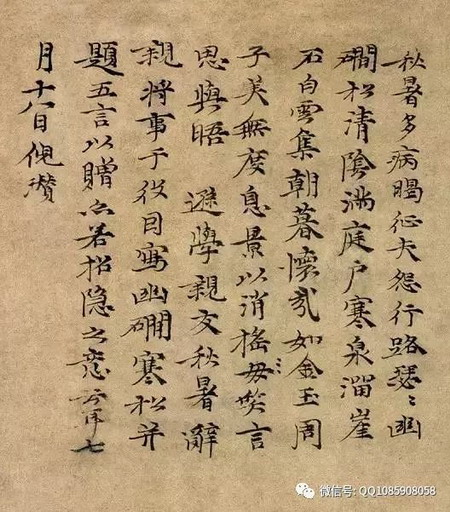 秋暑多病暍征夫怨行路瑟〻幽
磵松清陰滿庭户寒泉溜崖
石白雲集朝暮懷哉如金玉周
子美無度息景以消搖毋笑言
思與晤 遜學親友秋暑辭
親將事于役因寫幽磵寒松并
題五言以贈亦若招隱之意云耳七
月十八日倪瓚
微信号: QQ1085908058